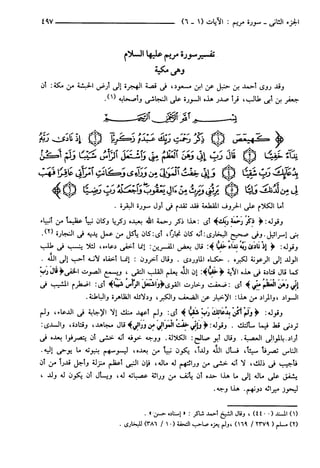 الجزء الثانى ـ سورة مريم : الآيات (١ - ٦) ٤٩٧
تفسير سورة مريم عليها السلام
وهى مكية
وقد روى أحمد بن حنبل عن ابن مسعود، فى قصة الهجرة إلى أرض الحبشة من مكة: أن
جعفر بن أبى طالب، قرأ صدر هذه السورة على النجاشى وأصحابه (١).
﴿ كٓهيعٓصٓ ۝ ذِكْرُ رَحْمَتِ رَبِّكَ عَبْدَهُۥ زَكَرِيَّآ ۝ إِذْ نَادَىٰ رَبَّهُۥ
نِدَآءً خَفِيًّا ۝ قَالَ رَبِّ إِنِّى وَهَنَ ٱلْعَظْمُ مِنِّى وَٱشْتَعَلَ ٱلرَّأْسُ شَيْبًا وَلَمْ أَكُنۢ
بِدُعَآئِكَ رَبِّ شَقِيًّا ۝ وَإِنِّى خِفْتُ ٱلْمَوَٰلِىَ مِن وَرَآءِى وَكَانَتِ ٱمْرَأَتِى عَاقِرًا فَهَبْ
لِى مِن لَّدُنكَ وَلِيًّا ۝ يَرِثُنِى وَيَرِثُ مِنْ ءَالِ يَعْقُوبَ وَٱجْعَلْهُ رَبِّ رَضِيًّا ۝ ﴾
أما الكلام على الحروف المقطعة فقد تقدم فى أول سورة البقرة .
وقوله: ﴿ ذِكْرُ رَحْمَتِ رَبِّكَ ﴾ أى : هذا ذكر رحمة الله بعبده زكريا وكان نبياً عظيماً من أنبياء
بنى إسرائيل. وفى صحيح البخارى: أنه كان نجاراً، أى: كان يأكل من عمل يديه فى النجارة (٢).
وقوله: ﴿ إِذْ نَادَىٰ رَبَّهُ نِدَاءً خَفِيًّا ﴾: قال بعض المفسرين: إنما أخفى دعاءه، لئلا ينسب فى طلب
الولد إلى الرعونة لكبره . حكاه الماوردى . وقال آخرون : إنما أخفاه لأنه أحب إلى الله .
كما قال قتادة فى هذه الآية ﴿ خَفِيًّا ﴾: إن الله يعلم القلب التقى ، ويسمع الصوت الخفى﴿ قَالَ رَبِّ
إِنِّى وَهَنَ الْعَظْمُ مِنِّى ﴾ أى : ضعفت وخارت القوى﴿ وَاشْتَعَلَ الرَّأْسُ شَيْبًا ﴾ أى: اضطرم المشيب فى
السواد ،والمراد من هذا: الإخبار عن الضعف والكبر، ودلائله الظاهرة والباطنة.
وقوله: ﴿ وَلَمْ أَكُن بِدُعَائِكَ رَبِّ شَقِيًّا ﴾ أى: ولم أعهد منك إلا الإجابة فى الدعاء، ولم
تردنى قط فيما سألتك . وقوله: ﴿ وَإِنِّى خِفْتُ الْمَوَالِىَ مِن وَرَائِى ﴾ قال مجاهد، وقتادة، والسدى:
أراد بالموالى العصبة. وقال أبو صالح: الكلالة. ووجه خوفه أنه خشى أن يتصرفوا بعده فى
الناس تصرفاً سيئاً، فسأل الله ولداً، يكون نبياً من بعده، ليسوسهم بنبوته ما يوحى إليه.
فأجيب فى ذلك، لا أنه خشى من وراثتهم له ماله، فإن النبى أعظم منزلة وأجل قدراً من أن
يشفق على ماله إلى ما هذا حده أن يأنف من وراثة عصباته له، ويسأل أن يكون له ولد ،
ليحوز ميراثه دونهم. هذا وجه.
(١) المسند (٤٤٠٠) ، وقال الشيخ أحمد شاكر : « إسناده حسن » .
(٢) مسلم ( ٢٣٧٩ / ١٦٩) ،ولم يعزه صاحب التحفة (١٠ / ٣٨٦) للبخارى .